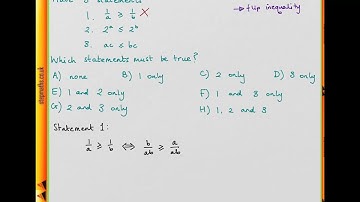 Have 3 statements
1. 1/a ≥ 1/b ✗
→ flip inequality
2. 2^a ≤ 2^b
3. ac ≤ bc
Which statements must be true?
A) none B) 1 only C) 2 only D) 3 only
E) 1 and 2 only F) 1 and 3 only
G) 2 and 3 only H) 1, 2 and 3
Statement 1:
1/a ≥ 1/b ⟺ b/ab ≥ a/ab